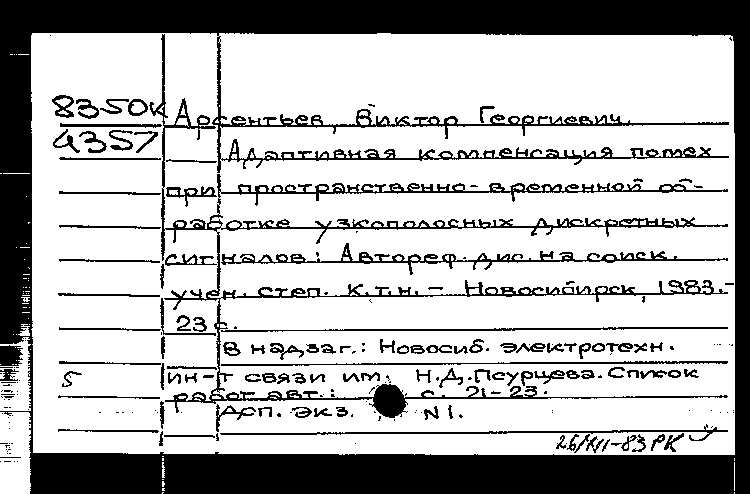 83-50К Арсентьев, Виктор Георгиевич.
4357 Адаптивная компенсация помех
при пространственно-временной об-
работке узкополосных дискретных
сигналов: Автореф. дис. на соиск.
учен. степ. к.т.н. - Новосибирск, 1983.-
23 с.
В надзаг.: Новосиб. электротехн.
5 ин-т связи им. Н.Д.Псурцева. Список
работ авт.: с. 21-23.
Арп. экз. N1.